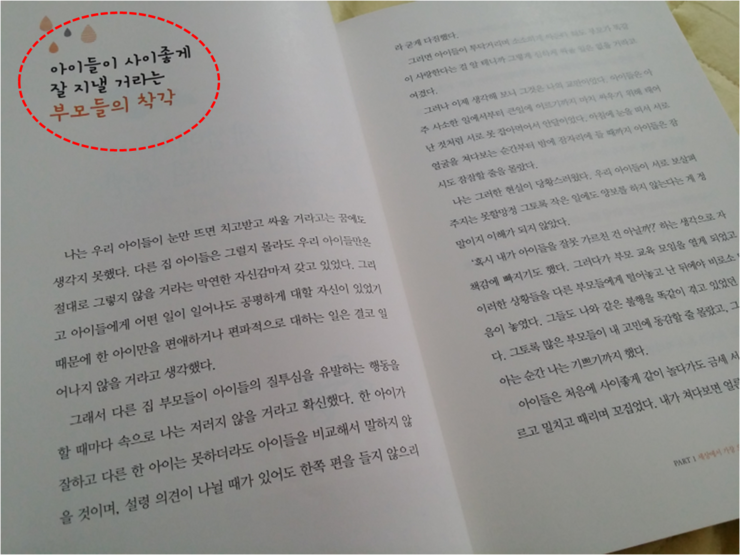 아이들이 사이좋게
잘 지낼 거라는
부모들의 착각
나는 우리 아이들이 눈만 뜨면 치고받고 싸울 거라고는 꿈에도
생각지 못했다. 다른 집 아이들은 그럴지 몰라도 우리 아이들만은
절대로 그렇지 않을 거라는 막연한 자신감마저 갖고 있었다. 그리
고 아이들에게 어떤 일이 일어나도 공평하게 대할 자신이 있었기
때문에 한 아이만을 편애하거나 편파적으로 대하는 일은 결코 일
어나지 않을 거라고 생각했다.
그래서 다른 집 부모들이 아이들의 질투심을 유발하는 행동을
할 때마다 속으로 나는 저러지 않을 거라고 확신했다. 한 아이가
잘하고 다른 한 아이는 못하더라도 아이들을 비교해서 말하지 않
을 것이며, 설령 의견이 나뉠 때가 있어도 한쪽 편을 들지 않으리
라 굳게 다짐했다.
그러면 아이들이 투닥거리며
이 사랑한다는 걸 알 테니까 그렇게
여겼다.
그러나 이제 생각해 보니 그것은 나의 교만이었다. 아이들은 아
주 사소한 일에서부터 큰일에 이르기까지 마치 싸우기 위해 태어
난 것처럼 서로 못 잡아먹어서 안달이었다. 아침에 눈을 떠서 서로
얼굴을 쳐다보는 순간부터 밤에 잠자리에 들 때까지 아이들은 잠
시도 잠잠할 줄을 몰랐다.
나는 그러한 현실이 당황스러웠다. 우리 아이들이 서로 보살펴
주지는 못할망정 그토록 작은 일에도 양보를 하지 않는다는 게 정
말이지 이해가 되지 않았다.
'혹시 내가 아이들을 잘못 가르친 건 아닐까?' 하는 생각으로 자
책감에 빠지기도 했다. 그러다가 부모 교육 모임을 열게 되었고
이러한 상황들을 다른 부모들에게 털어놓고 난 뒤에야 비로소
음이 놓였다. 그들도 나와 같은 불행을 똑같이 겪고 있었던
다. 그토록 많은 부모들이 내 고민에 동감할 줄 몰랐고, 그
아는 순간 나는 기쁘기까지 했다.
아이들은 처음에 사이좋게 같이 놀다가도 금세 서
르고 밀치고 때리며 꼬집었다. 내가 쳐다보면 얼른
PART 1